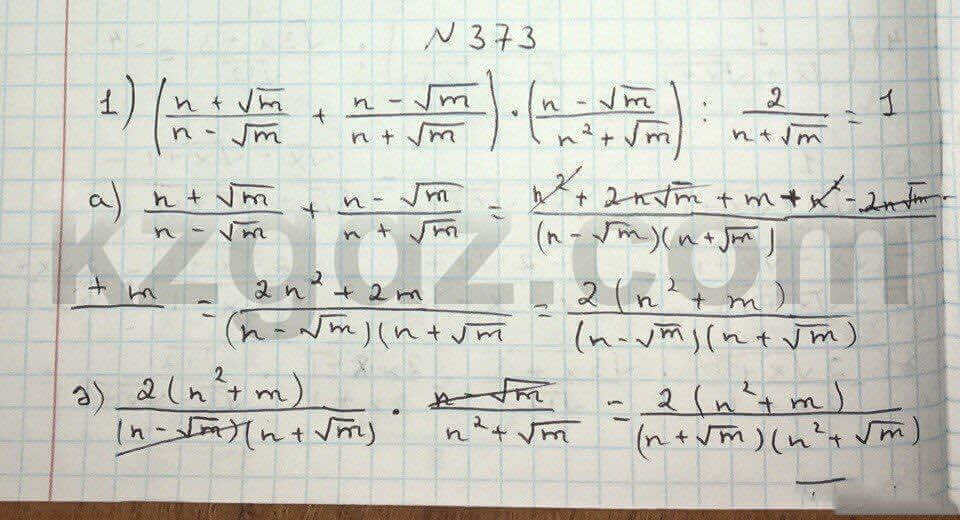 N 373
1) ((n + √m)/(n - √m) + (n - √m)/(n + √m)) · ((n - √m)/(n² + √m)) : 2/(n + √m) = 1
a) (n + √m)/(n - √m) + (n - √m)/(n + √m) = (n² + 2n√m + m + n² - 2n√m -)/((n - √m)(n + √m))
+ m = (2n² + 2m)/((n - √m)(n + √m) = 2(n² + m)/((n - √m)(n + √m))
2) 2(n² + m)/((n - √m)(n + √m)) · (n - √m)/(n² + √m) = 2(n² + m)/((n + √m)(n² + √m))
kzgdz.com